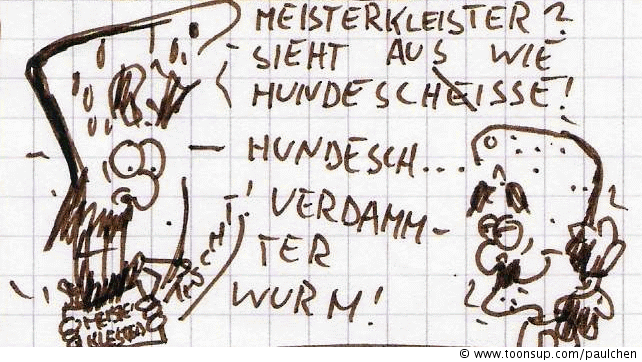 MEISTERKLEISTER?
SIEHT AUS WIE
HUNDESCHEISSE!
HUNDESCH...
VERDAMM-
TER
WURM!
TUSCHT!
MEISTER
KLEISTER
© www.toonsup.com/paulchen